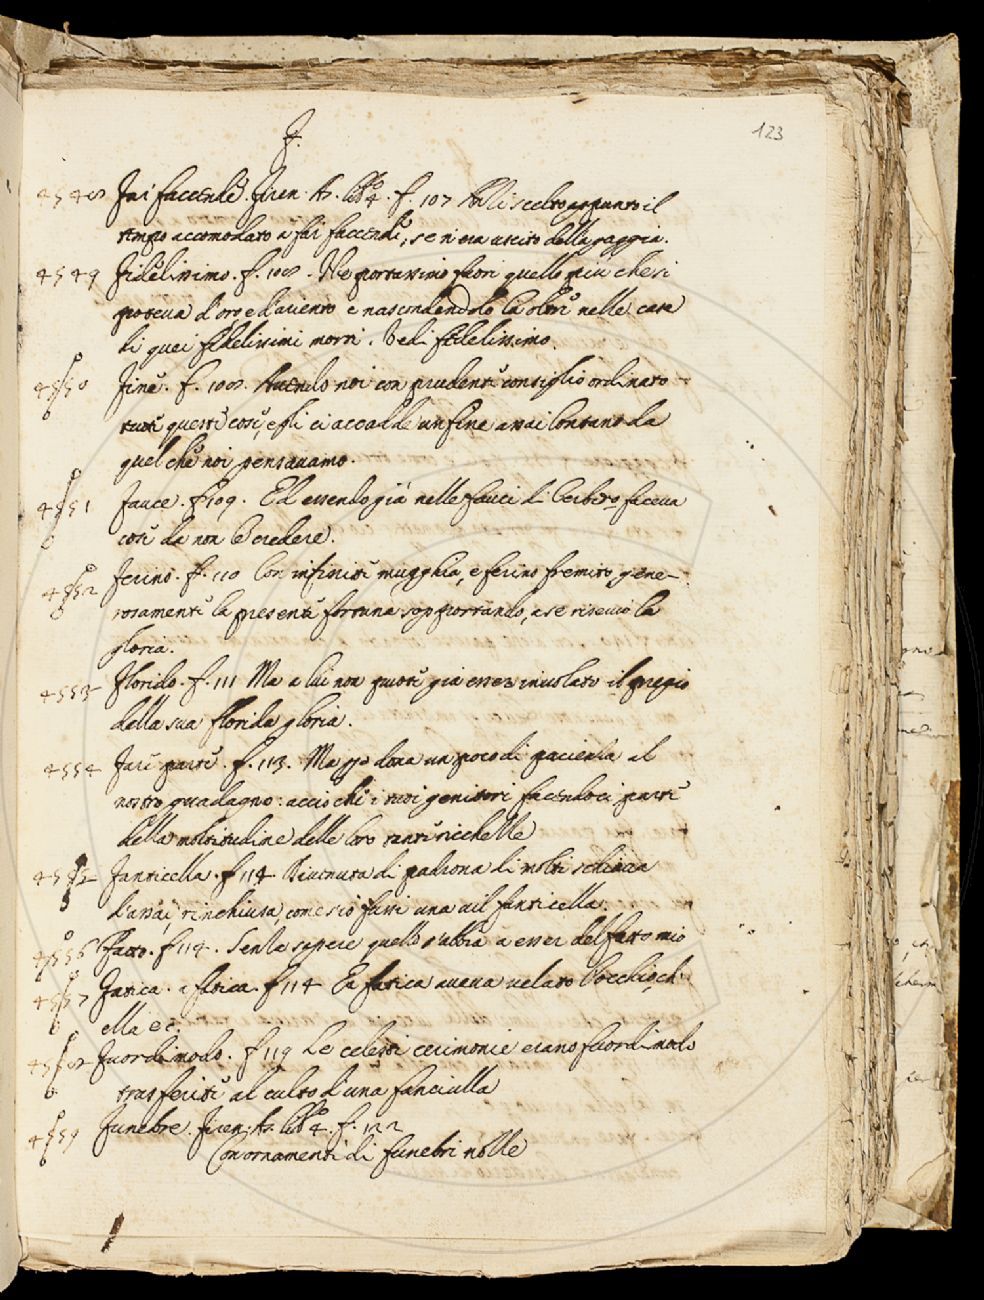 F.
123
4548 Fai faccende. Firen. As. lib.o 4. f. 107 scelto appunto il
tempo accomodato a fai faccende, se n'era uscito della
4549 Fidelissimo. f. 108. Ne portassimo fuori quello piu che si
poteva d'oro e d'ariento e nascondendolo la oltre nelle case
di quei fidelissimi morti. Vedi fidelissimo.
4550 Fine. f. 108. Avendo noi con prudente consiglio ordinato
tutte queste cose, egli ci accadde un fine assai lontano da
quel che noi pensavamo.
4551 Fauce. f. 109. Ed essendo già nelle fauci di Cerbero faceva
cose da non le credere.
4552 Ferino. f. 110 Con infinite mugghia, e ferino fremito gene-
rosamente la presente fortuna sopportando, a se riservò la
gloria.
4553 Florido. f. 111 Ma a lui non puote già esser involato il pregio
della sua florida gloria.
4554 Fare parte. f. 113. Ma dona un poco di pacienza al
nostro guadagno: acciochè i tuoi genitori facendoci parte
della moltitudine delle loro tante ricchezze
4555 Fanticella. f. 114 Divenuta di padrona di molti schiava
d'assai, rinchiusa, come s'io fussi una vil fanticella.
4556 Fatto. f. 114. Senza sapere quello s'abbia a esser del fatto mio
4557 Fatica. a fatica. f. 114 E a fatica aveva velato l'occhio, ch'
ella ec.
4558 Fuordimodo. f. 119 Le celesti cerimonie erano fuordimodo
trasferite al culto d'una fanciulla
4559 Funebre. Firen. As. lib.o 4. f. 122
Con ornamenti di funebri nozze